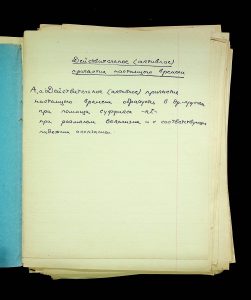 Действительное (активное)
причастие настоящего времени
А, а. Действительное (активное) причастие
настоящего времени образуется в
при помощи суффикса -нт-
при различном вокализме и с соответствующим
падежным окончанием.